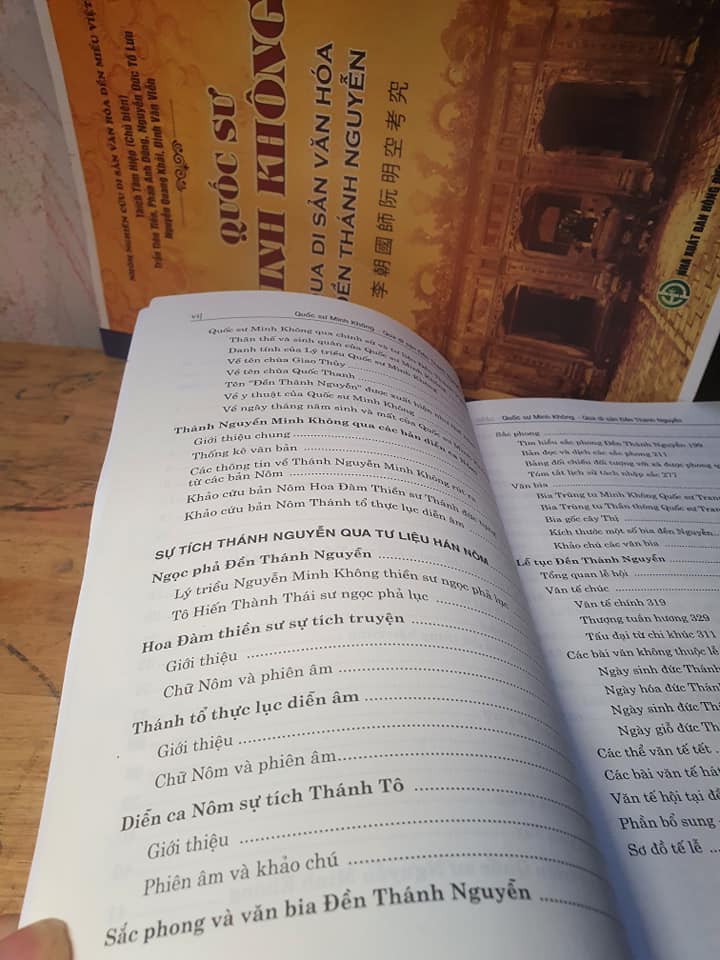 NHÓM NGHIÊN CỨU DI SẢN VĂN HÓA ĐỀN MIẾU VIỆT
Thích Tâm Hiệp (Chủ biên)
Trần Văn Tiến, Phan Anh Dũng, Nguyễn Đức Tố Lưu
Nguyễn Quang Khải, Đinh Văn Viễn
QUỐC SƯ
INH KHÔNG
QUA DI SẢN VĂN HÓA
ĐỀN THÁNH NGUYỄN
李朝國師阮明空考究
NHÀ XUẤT BẢN HỒNG ĐỨC
vi| Quốc sư Minh Không - Qua di sản Đền
Quốc sư Minh Không qua chính sử và tư liệu
Thân thế và sinh quán của Quốc sư Minh
Danh tính của Lý triều Quốc sư Minh Không
Về tên chùa Giao Thủy
Về tên chùa Quốc Thanh
Tôn "Đền Thánh Nguyễn" được xuất hiện như
Về y thuật của Quốc sư Minh Không
Về ngày tháng năm sinh và mất của Quốc sư Minh
Thánh Nguyễn Minh Không qua các bản diễn ca Nôm
Giới thiệu chung
Thống kê văn bản
Các thông tin về Thánh Nguyễn Minh Không rút ra
từ các bản Nôm
Khảo cứu bản Nôm Hoa Đàm Thiền sư Thánh đức
Khảo cứu bản Nôm Thánh tổ thực lục diễn âm
SỰ TÍCH THÁNH NGUYỄN QUA TƯ LIỆU HÁN NÔM
Ngọc phả Đền Thánh Nguyễn
Lý triều Nguyễn Minh Không thiền sư ngọc phả lục
Tô Hiến Thành Thái sư ngọc phả lục
Hoa Đàm thiền sư sự tích truyện
Giới thiệu
Chữ Nôm và phiên âm
Thánh tổ thực lục diễn âm
Giới thiệu
Chữ Nôm và phiên âm
Diễn ca Nôm sự tích Thánh Tô
Giới thiệu
Phiên âm và khảo chú
Sắc phong và văn bia Đền Thánh Nguyễn
Quốc sư Minh Không - Qua di sản Đền Thánh Nguyễn
Sắc phong
Tìm hiểu sắc phong Đền Thánh Nguyễn 199
Bản đọc và dịch các sắc phong 211
Bảng đối chiếu đối tượng với xã được phong
Tóm tắt lịch sử tách nhập xác 277
Văn bia
Bia Trùng tu Minh Không Quốc sư
Bia Trùng tu Thần thông Quốc sư
Bia gốc cây Thị
Kích thước một số bia đền Nguyễn
Khảo chú các văn bia
Lễ tục Đền Thánh Nguyễn
Tổng quan lễ hội
Văn tế chức
Văn tế chính 319
Thượng tuần hương 329
Tấu đại từ chi khúc 311
Các bài văn không thuộc lễ
Ngày sinh đức Thánh
Ngày hóa đức Thánh
Ngày sinh đức Thá
Ngày giỗ đức Thá
Các thể văn tế tết
Các bài văn tế hát
Văn tế hội tại đề
Phần bổ sung
Sơ đồ tế lễ